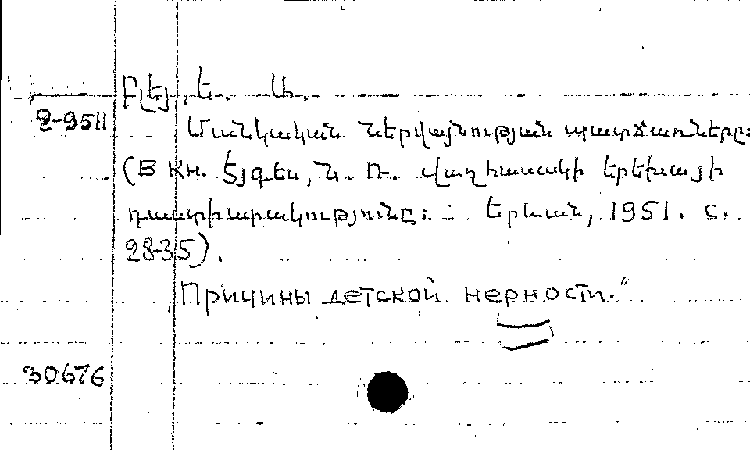 Բլեյ, Ե. Ա.
2-9511
Մանկական ներվայնության պատճառները:
(В кн. Էյգես, Ն. Ռ. Վաղ հասակի երեխայի
դաստիարակությունը: - Երևան, 1951. с.
28-35).
Причины детской нерности."
30676